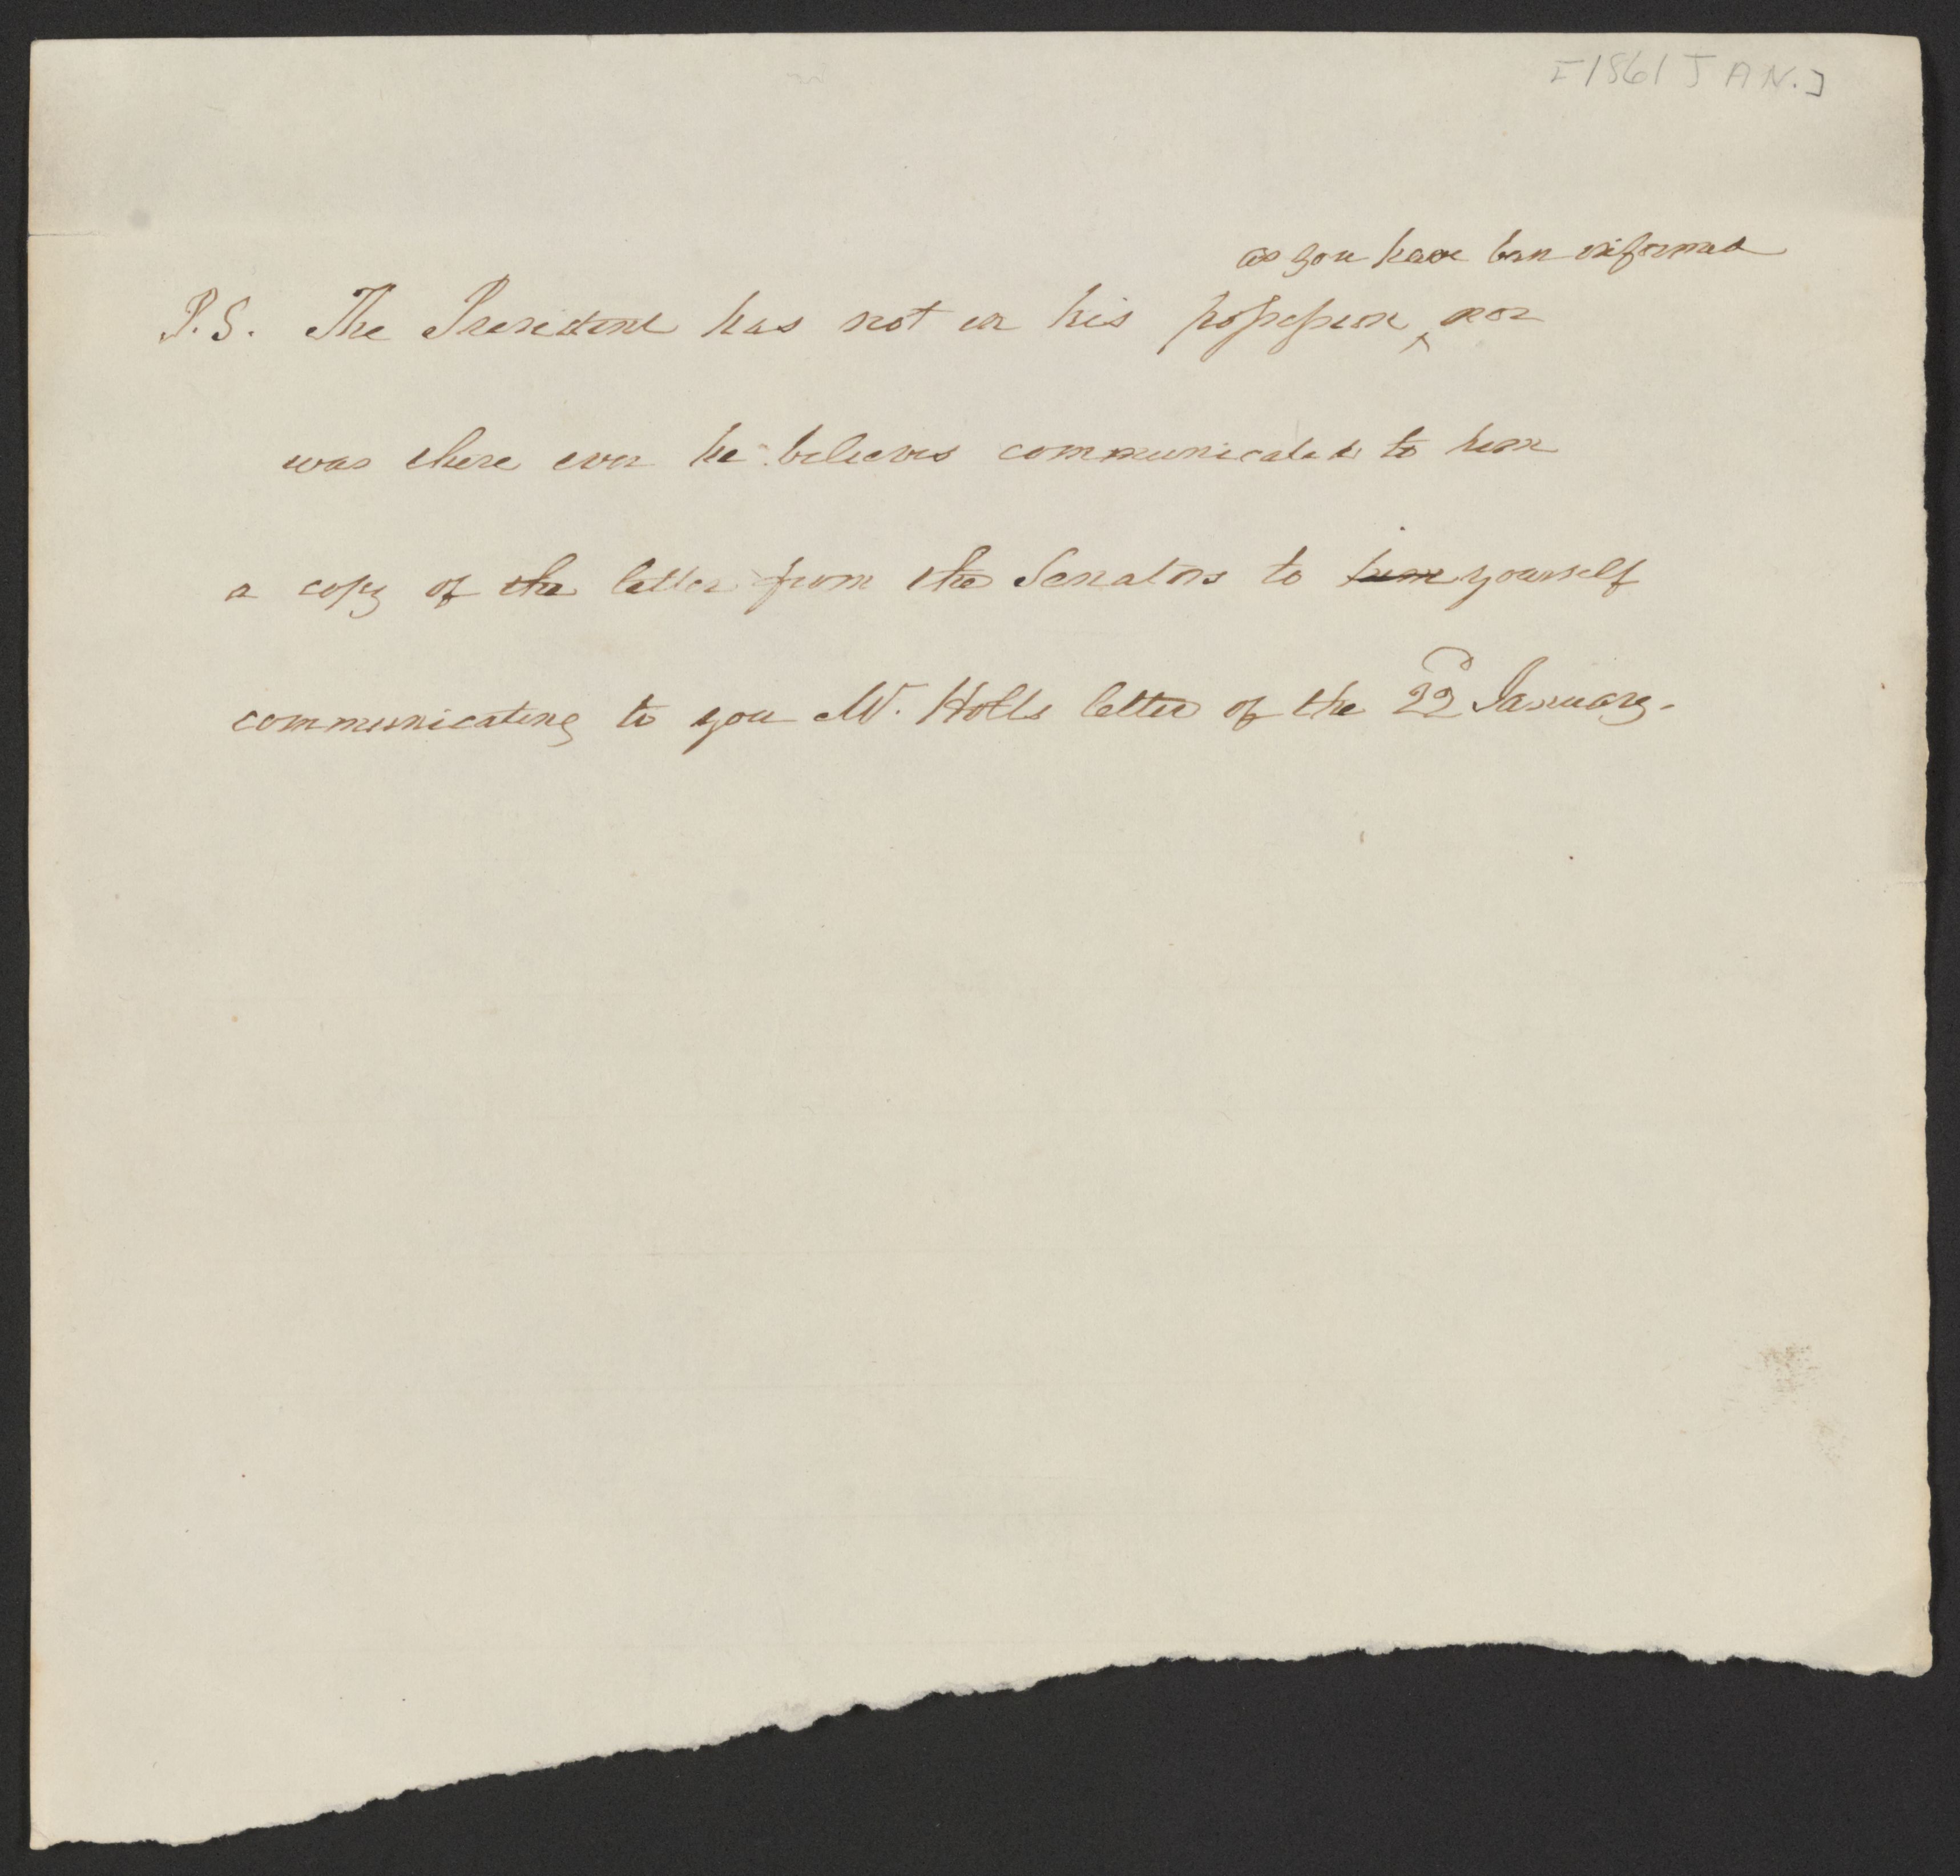 [1861 JAN.]
as you have been informed
P.S. The President has not in his possession, nor
was there ever he believes communicated to him
a copy of the letter from the Senators to him yourself
communicating to you Mr. Holts letter of the 22d January.